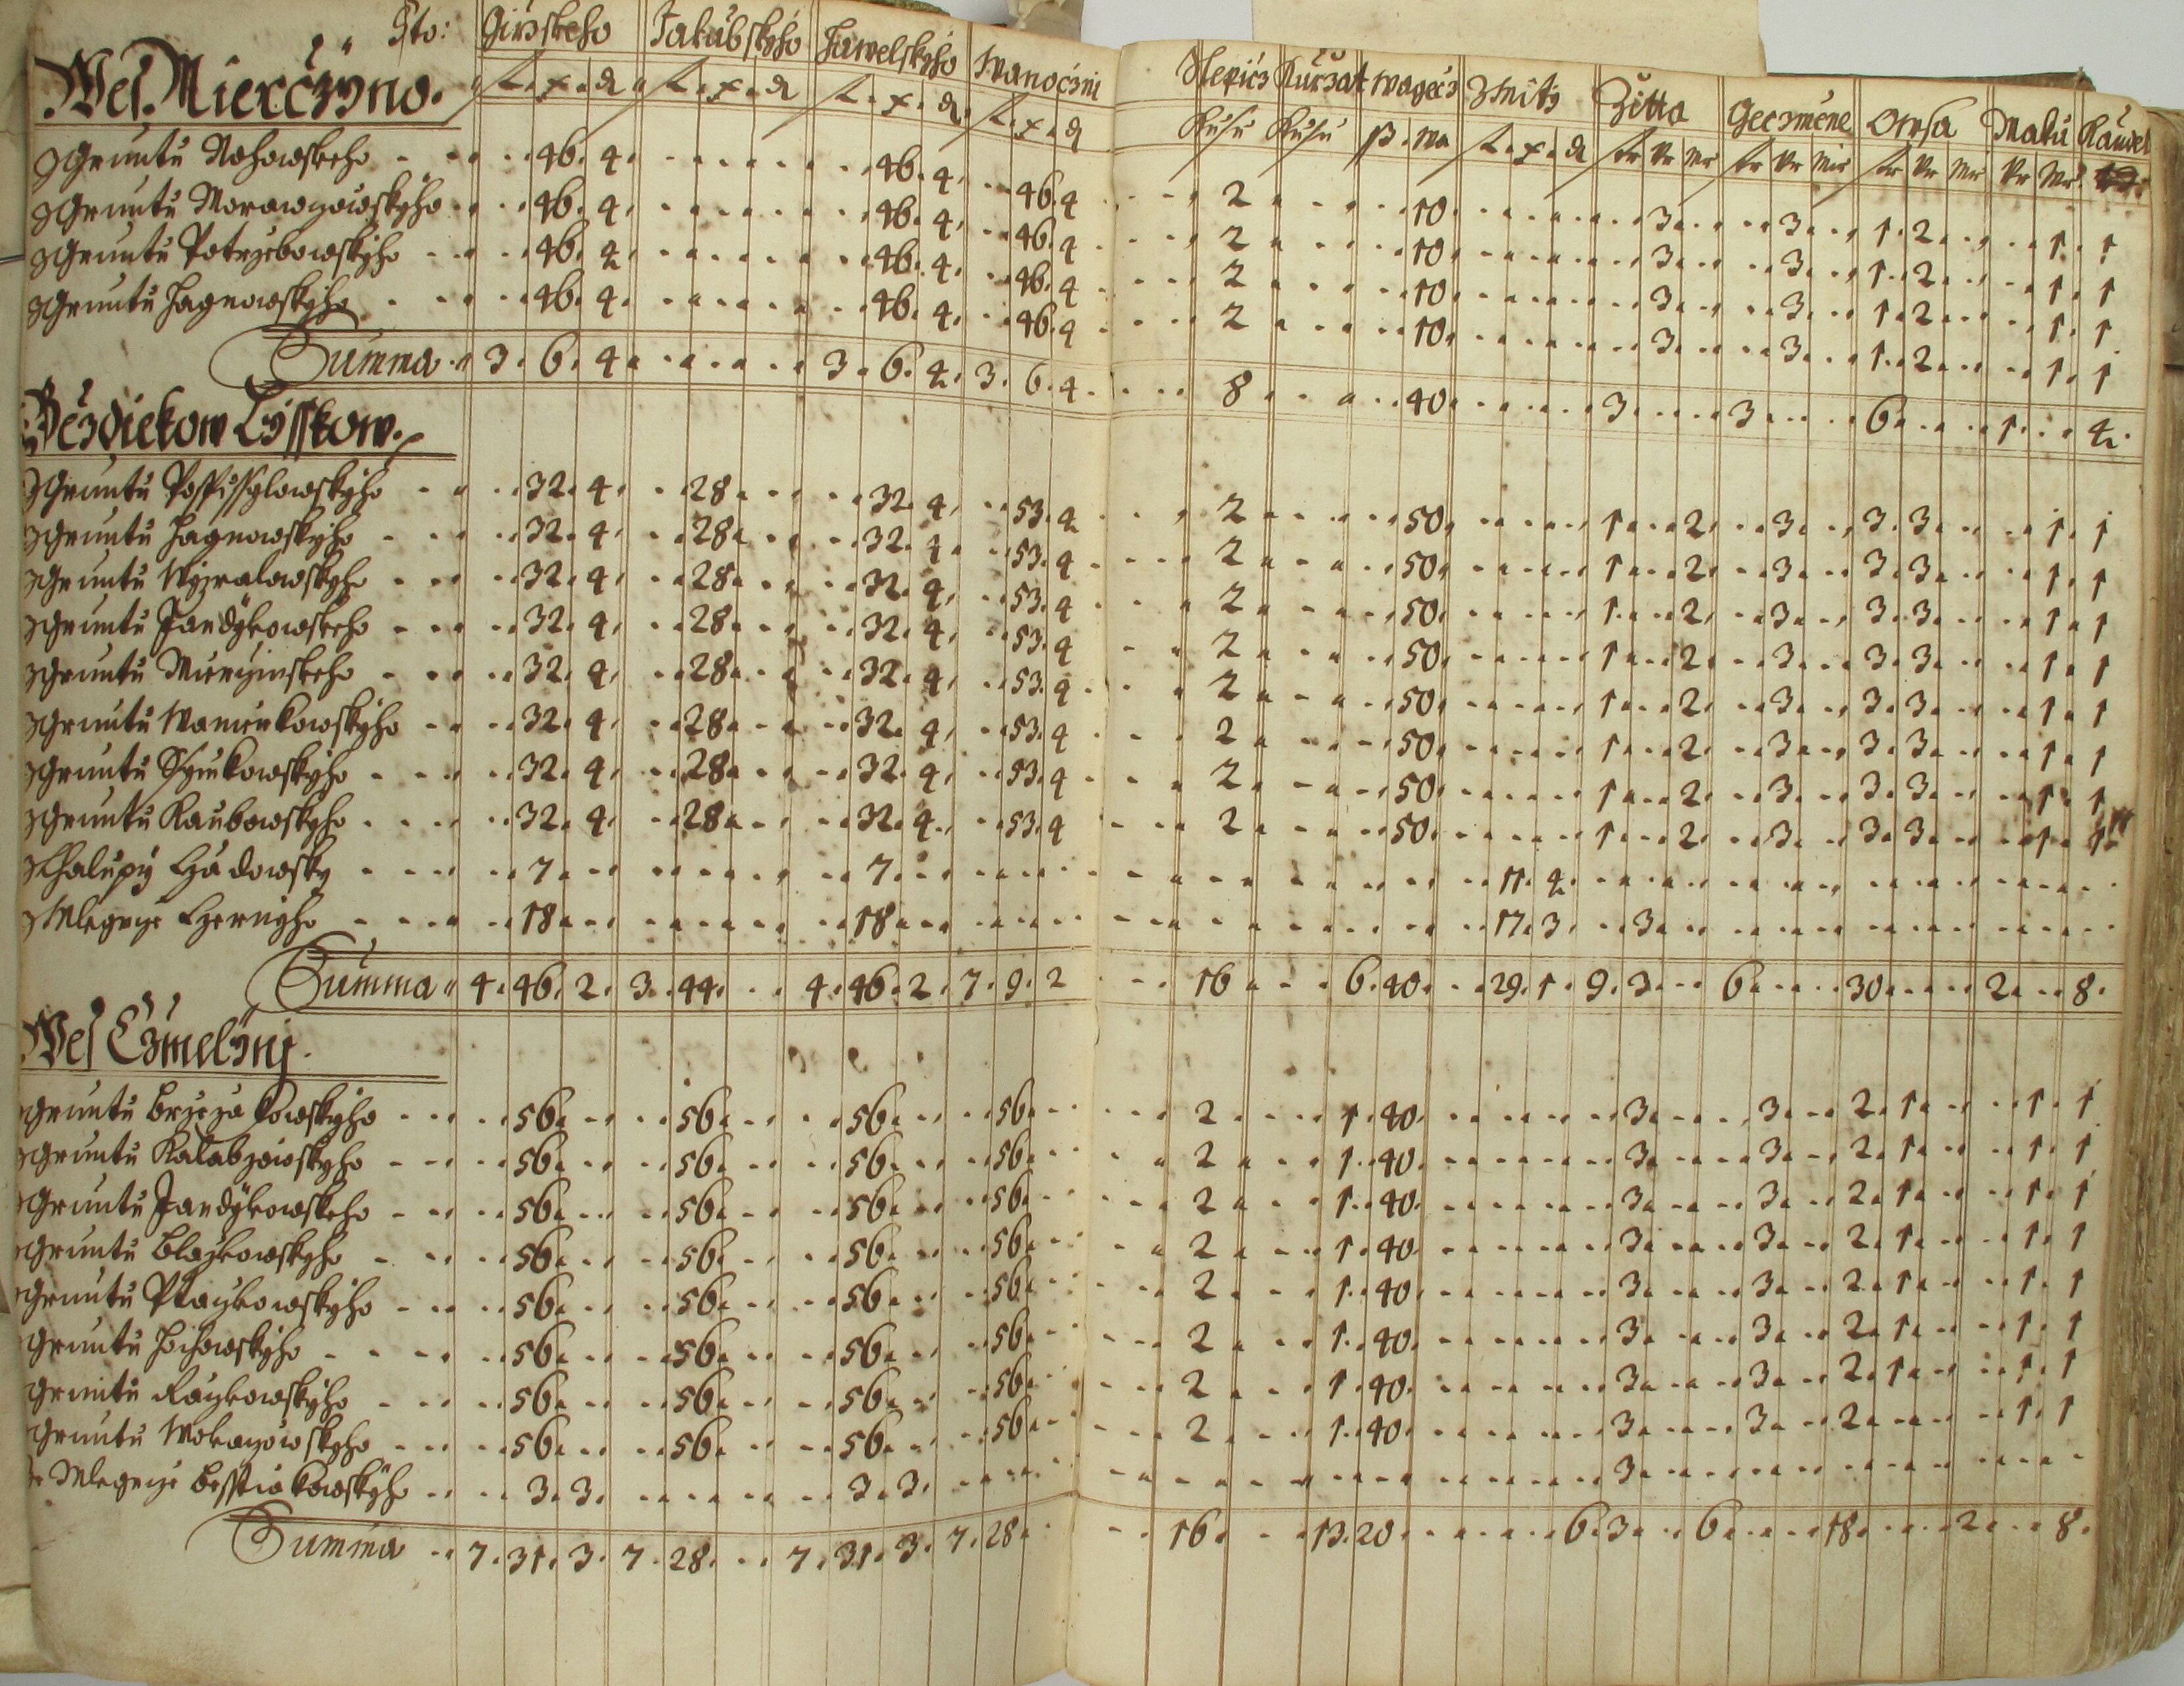 Sto: Girzskeho Jakubskyho Hawelskyho Wanoczni Slepicz Kurzat Wagecz Zwitz Žitta Geczmene Owsa Maku Kaudel
Wes Mierczyno. L. x. d L. x. d L. x. d L. x. d Kusu Kusu ß. Wa L. x. d tr Vr Mr tr Vr Mir tr Vr Mr Vr Mr
z Gruntu Nohowskeho 46. 4 46. 4 46. 4 2 10 3 3 1. 2 1. 1
z Gruntu Morawgowskyho 46. 4 46. 4 46. 4 2 10 3 3 1. 2 1. 1
z Gruntu Potrzebowskyho 46. 4 46. 4 46. 4 2 10 3 3 1. 2 1. 1
z Gruntu Hagnowskyho 46. 4 46. 4 46. 4 2 10 3 3 1. 2 1. 1
Summa 3. 6. 4 3. 6. 4 3. 6. 4 8 40 3 3 6 1 4
Bezdiekow Lysskow.
z Gruntu Pospissylowskyho 32. 4 28 32. 4 53. 4 2 50 1 2 3 3. 3 1. 1
z Gruntu Hagnowskyho 32. 4 28 32. 4 53. 4 2 50 1 2 3 3. 3 1. 1
z Gruntu Wyzralowskyho 32. 4 28 32. 4 53. 4 2 50 1 2 3 3. 3 1. 1
z Gruntu Jandykowskeho 32. 4 28 32. 4 53. 4 2 50 1 2 3 3. 3 1. 1
z Gruntu Murzinskeho 32. 4 28 32. 4 53. 4 2 50 1 2 3 3. 3 1. 1
z Gruntu Wamenkowskyho 32. 4 28 32. 4 53. 4 2 50 1 2 3 3. 3 1. 1
z Gruntu Symkowskyho 32. 4 28 32. 4 53. 4 2 50 1 2 3 3. 3 1. 1
z Gruntu Kaubowskyho 32. 4 28 32. 4 53. 4 2 50 1 2 3 3. 3 1.
z Chalupy Hudowsky 7 7 11. 4
z Mlegnize Czernyho 18 18 17. 3 3
Summa 4. 46. 2 3. 44 4. 46. 2 7. 9. 2 16 6. 40 29. 1 9. 3 6 30 2 8
Wes Czmelyni
Gruntu Brzezakowskyho 56 56 56 56 2 1. 40 3 3 2. 1 1. 1
Gruntu Kalabzowskyho 56 56 56 56 2 1. 40 3 3 2. 1 1. 1
Gruntu Jandykowskeho 56 56 56 56 2 1. 40 3 3 2. 1 1. 1
Gruntu Blazkowskyho 56 56 56 56 2 1. 40 3 3 2. 1 1. 1
Gruntu Ptazkowskyho 56 56 56 56 2 1. 40 3 3 2. 1 1. 1
Gruntu Hochowskyho 56 56 56 56 2 1. 40 3 3 2. 1 1. 1
Gruntu Razkowskyho 56 56 56 56 2 1. 40 3 3 2. 1 1. 1
Gruntu Wokazowskyho 56 56 56 56 2 1. 40 3 3 2 1. 1
Mlegnize Besstiakowskyho 3. 3 3. 3 3
Summa 7. 31. 3 7. 28 7. 31. 3 7. 28 16 13. 20 6. 3 6 18 2 8